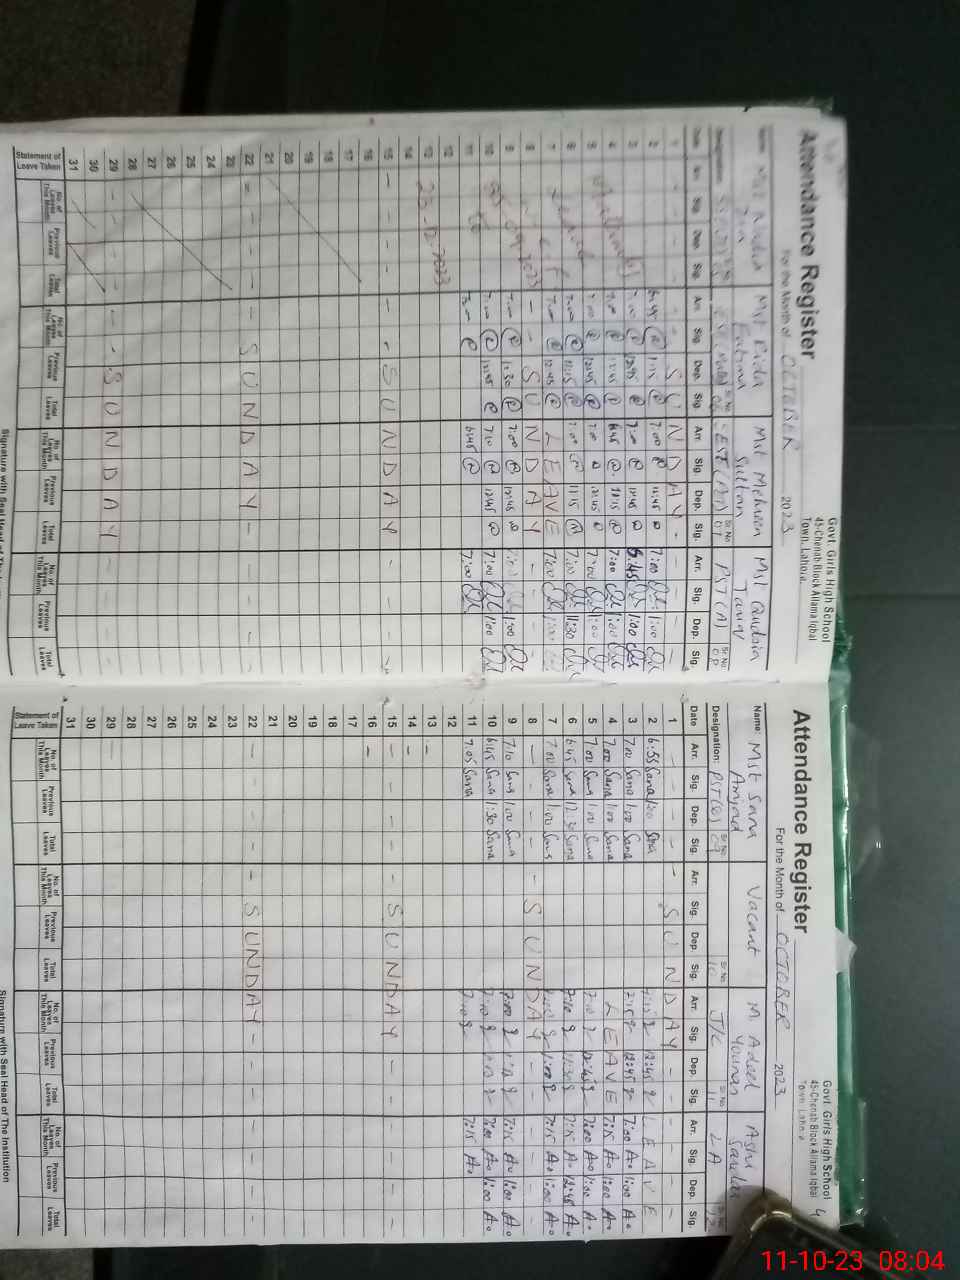 Attendance Register
For the Month of OCTOBER 2023
Govt. Girls High School
45-Chenab Block Allama Iqbal
Town, Lahore.
Name: Mst Nadia Mst Rida Fatima Mst Mehreen Sultan Mst Qudsia
Designation: EST PST (A)
Sr. No. 06 Sr. No. 07 Sr. No. 08
Date Arr. Sig. Dep. Sig. Arr. Sig. Dep. Sig. Arr. Sig. Dep. Sig. Arr. Sig. Dep. Sig.
1 SUNDAY
2 6:45 1:15 7:00 12:45 7:00 1:00
3 7:00 12:45 7:00 12:45 6:45 1:00
4 7:00 12:45 6:45 1:15 7:00 1:00
5 7:00 12:45 7:00 12:45 7:00 1:00
6 7:00 1:15 7:00 1:15 7:00 11:30
7 7:00 12:45 LEAVE 7:00 1:00
8 SUNDAY
9 7:00 12:30 7:00 12:45 1:00
10 7:00 12:45 7:10 12:45 7:00 1:00
11 7:00 6:45 7:00
12
13 23-12-2023
14
15 SUNDAY
16
17
18
19
20
21
22 SUNDAY
23
24
25
26
27
28
29 SUNDAY
30
31
Statement of Leave Taken
No. of Leaves This Month Previous Leaves Total Leaves No. of Leaves This Month Previous Leaves Total Leaves No. of Leaves This Month Previous Leaves Total Leaves No. of Leaves This Month Previous Leaves Total Leaves
Signature with Seal Head of The
Attendance Register
For the Month of OCTOBER 2023
Govt. Girls High School 4
45-Chenab Block Allama Iqbal
Town, Lahore
Name: Mst Sana Amjad Vacant M Adeel Younas
Designation: PST (B) J/C LA
Sr. No. 09 Sr. No. 10 Sr. No. 11 Sr. No. 12
Date Arr. Sig. Dep. Sig. Arr. Sig. Dep. Sig. Arr. Sig. Dep. Sig. Arr. Sig. Dep. Sig.
1 SUNDAY
2 6:55 Sana 1:00 Sana 12:45 LEAVE
3 7:00 Sana 1:00 Sana 7:15 12:45 7:00 A. 1:00 A.
4 7:00 Sana 1:00 Sana LEAVE 7:15 A. 1:00 A.
5 7:00 Sana 1:00 Sana 7:10 12:45 7:00 A. 1:00 A.
6 6:45 Sana 12:30 Sana 7:10 11:30 7:15 A. 12:45 A.
7 7:00 Sana 1:00 Sana 1:00 7:15 A. 1:00 A.
8 SUNDAY
9 7:10 Sana 1:00 Sana 7:00 1:10 7:15 A. 1:00 A.
10 6:45 Sana 1:30 Sana 7:10 7:00 A. 1:00 A.
11 7:05 Sana 7:10 7:15 A.
12
13
14
15 SUNDAY
16
17
18
19
20
21
22 SUNDAY
23
24
25
26
27
28
29
30
31
Statement of Leave Taken
No. of Leaves This Month Previous Leaves Total Leaves No. of Leaves This Month Previous Leaves Total Leaves No. of Leaves This Month Previous Leaves Total Leaves No. of Leaves This Month Previous Leaves Total Leaves
Signature with Seal Head of The Institution
11-10-23 08:04